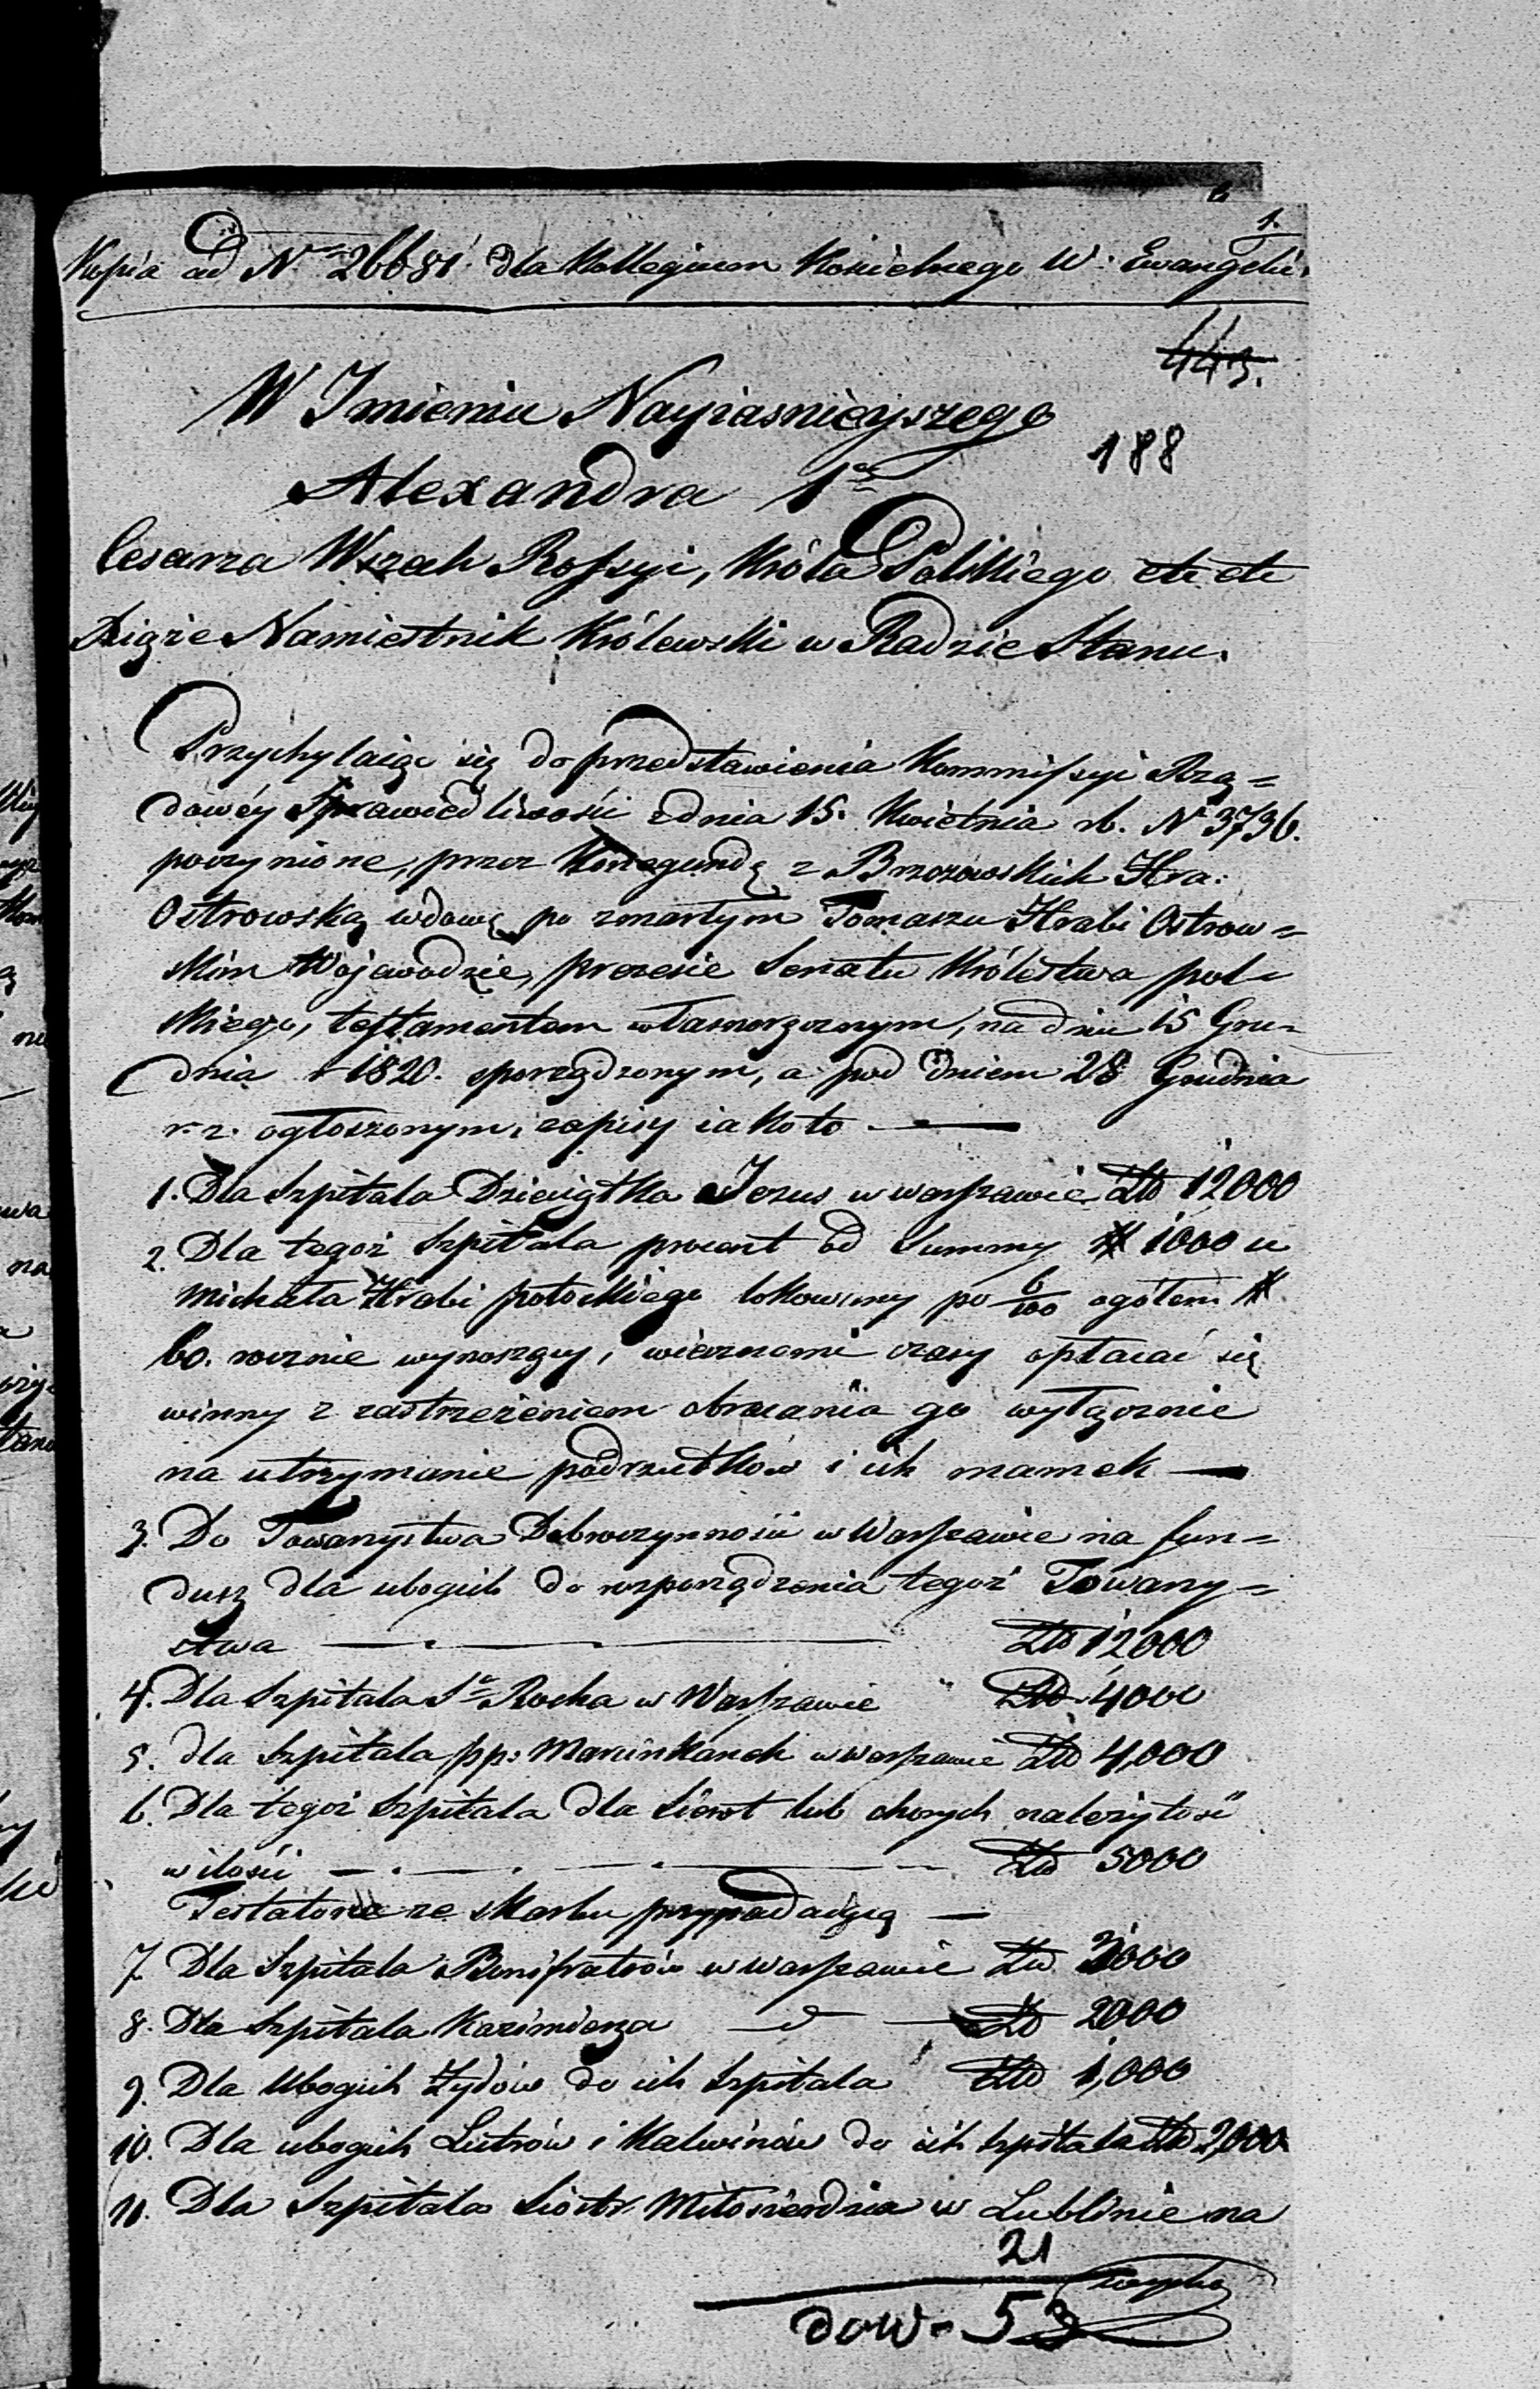 1.
Kopia ad Nr 26681 dla Kollegium Kościelnego W: Ewangelic:
443.
W Imieniu Nayiasnieyszego
188
Alexandra 1go
Cesarza Wszech Rossyi, Króla Polskiego etc etc
Xiąże Namiestnik Królewski w Radzie Stanu.
Przychylaiąc się do przedstawienia Kommissyi Rzą=
dowéy Sprawiedliwości z dnia 15. Kwietnia rb. No 3736.
poczynione, przez Konegundę z Brzozowskich Hra:
Ostrowską wdowę po zmarłym Tomaszu Hrabi Ostrow=
skim Wojewodzie, prezesie Senatu Królestwa pol=
skiego, testamentem własnoręcznym, na dniu 15 Gru=
dnia r 1820. sporządzonym, a pod dniem 28 Grudnia
r. z. ogłoszonym, zapisy iako to —
1. Dla Szpitala Dzieciątka Jezus w warszawie Złp 12000
2. Dla tegoż Szpitala procent od Summy # 1000 u
Michała Hrabi potockiego lokowany po 6/100 ogółem #
60. rocznie wynoszący, wiecznemi czasy opłacać się
winny z zastrzeżeniem obracania go wyłącznie
na utrzymanie podrzutków i ich mamek —
3. Do Towarzystwa Dobroczynności w Warszawie na fun=
dusz dla ubogich do rozporządzenia tegoż Towarzy=
stwa — Złp 12000
4. Dla Szpitala Sgo Rocha w Warszawie " Złp 4000
5. dla Szpitala pp: Marcinkanek w warszawie Złp 4,000
6. Dla tegoż Szpitala dla Sierot lub chorych należytość
w ilości — Złp 5000
Testatorce ze skarbu przypadaiącą —
7. Dla Szpitala Bonifratrów w warszawie Złp 3000
8. Dla Szpitala Kazimierza — d — Złp 2000
9. Dla Ubogich Żydów do ich Szpitala Złp 1,000
10. Dla ubogich Lutrów i Kalwinów do ich szpitala Złp 2,000
11. Dla Szpitala Siostr Miłosierdzia w Lublinie na
21
dow - 53